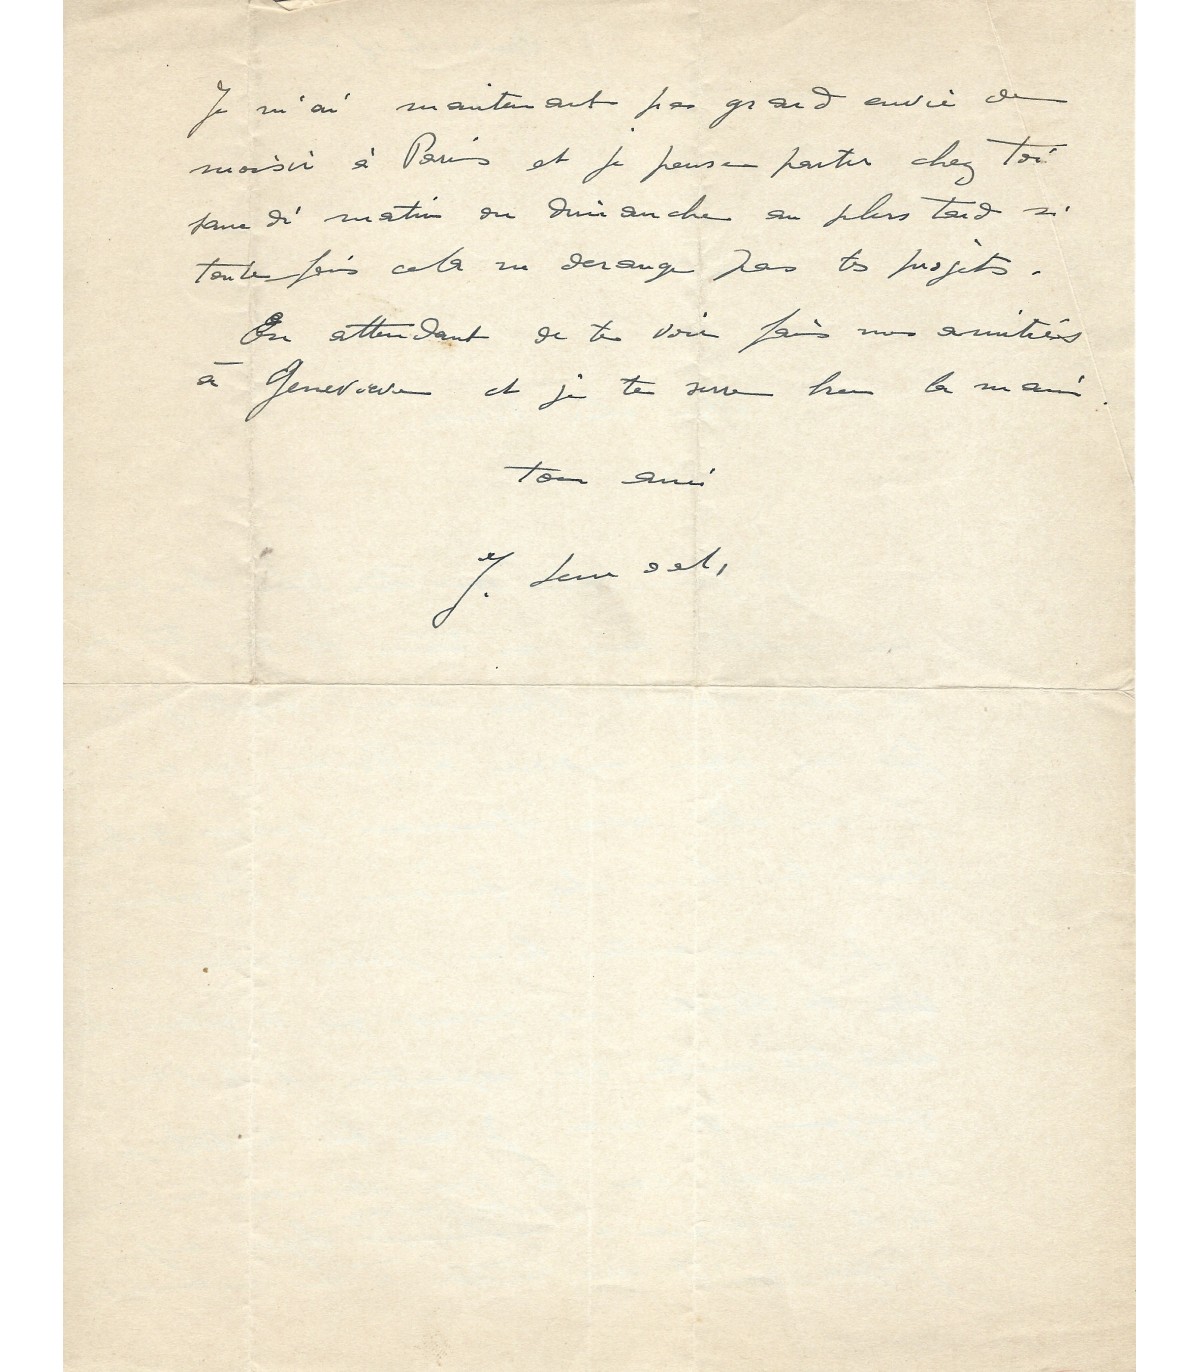 Je n'ai maintenant pas grand envie de
moisir à Paris et je pense partir chez toi
samedi matin ou dimanche au plus tard si
toutefois cela ne derange pas tes projets.
En attendant de te voir fais mes amitiés
à Genevieve et je te serre bien la main.
ton ami
J.